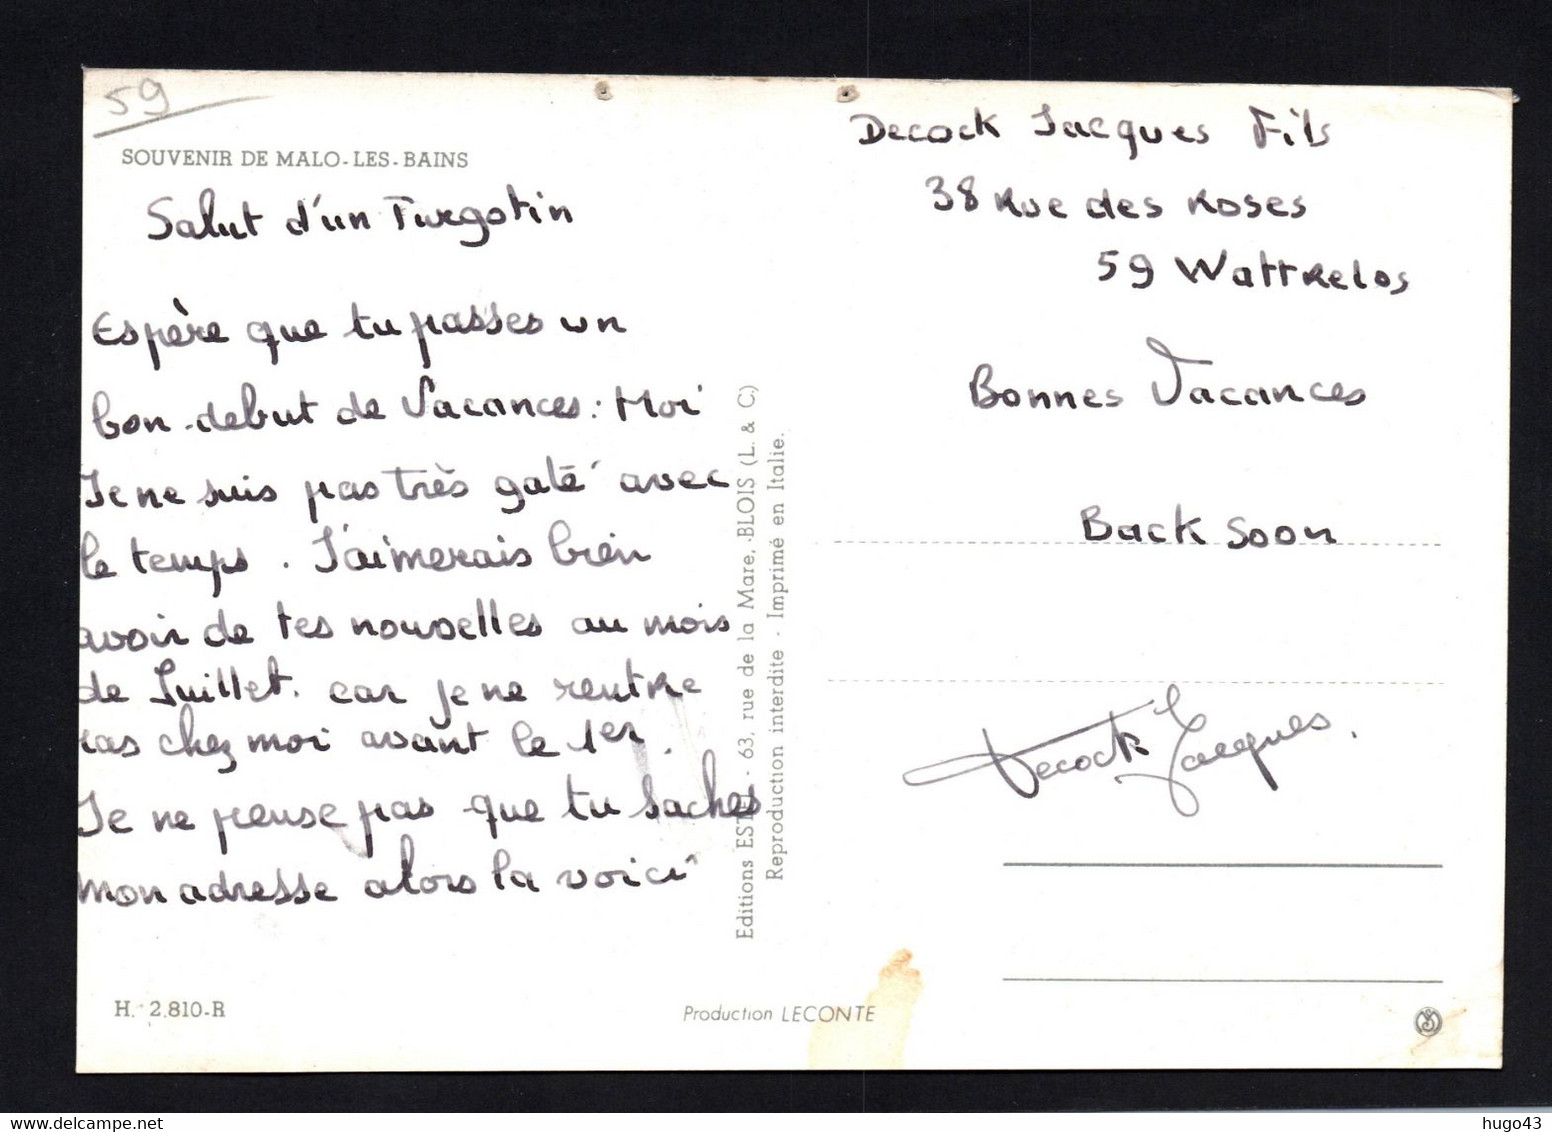 59
SOUVENIR DE MALO-LES-BAINS
Salut d'un Turgotin
Espère que tu passes un
bon debut de Vacances. Moi
Je ne suis pas très gaté avec
le temps. J'aimerais bien
avoir de tes nouvelles au mois
de Juillet. car je ne rentre
pas chez moi avant le 1er.
Je ne pense pas que tu saches
mon adresse alors la voici
H. 2.810-R
Editions ESTEL - 63, rue de la Mare, BLOIS (L. & C.)
Reproduction interdite - Imprimé en Italie.
Production LECONTE
Decock Jacques Fils
38 Rue des Roses
59 Wattrelos
Bonnes Vacances
Back Soon
Decock Jacques.
hugo43